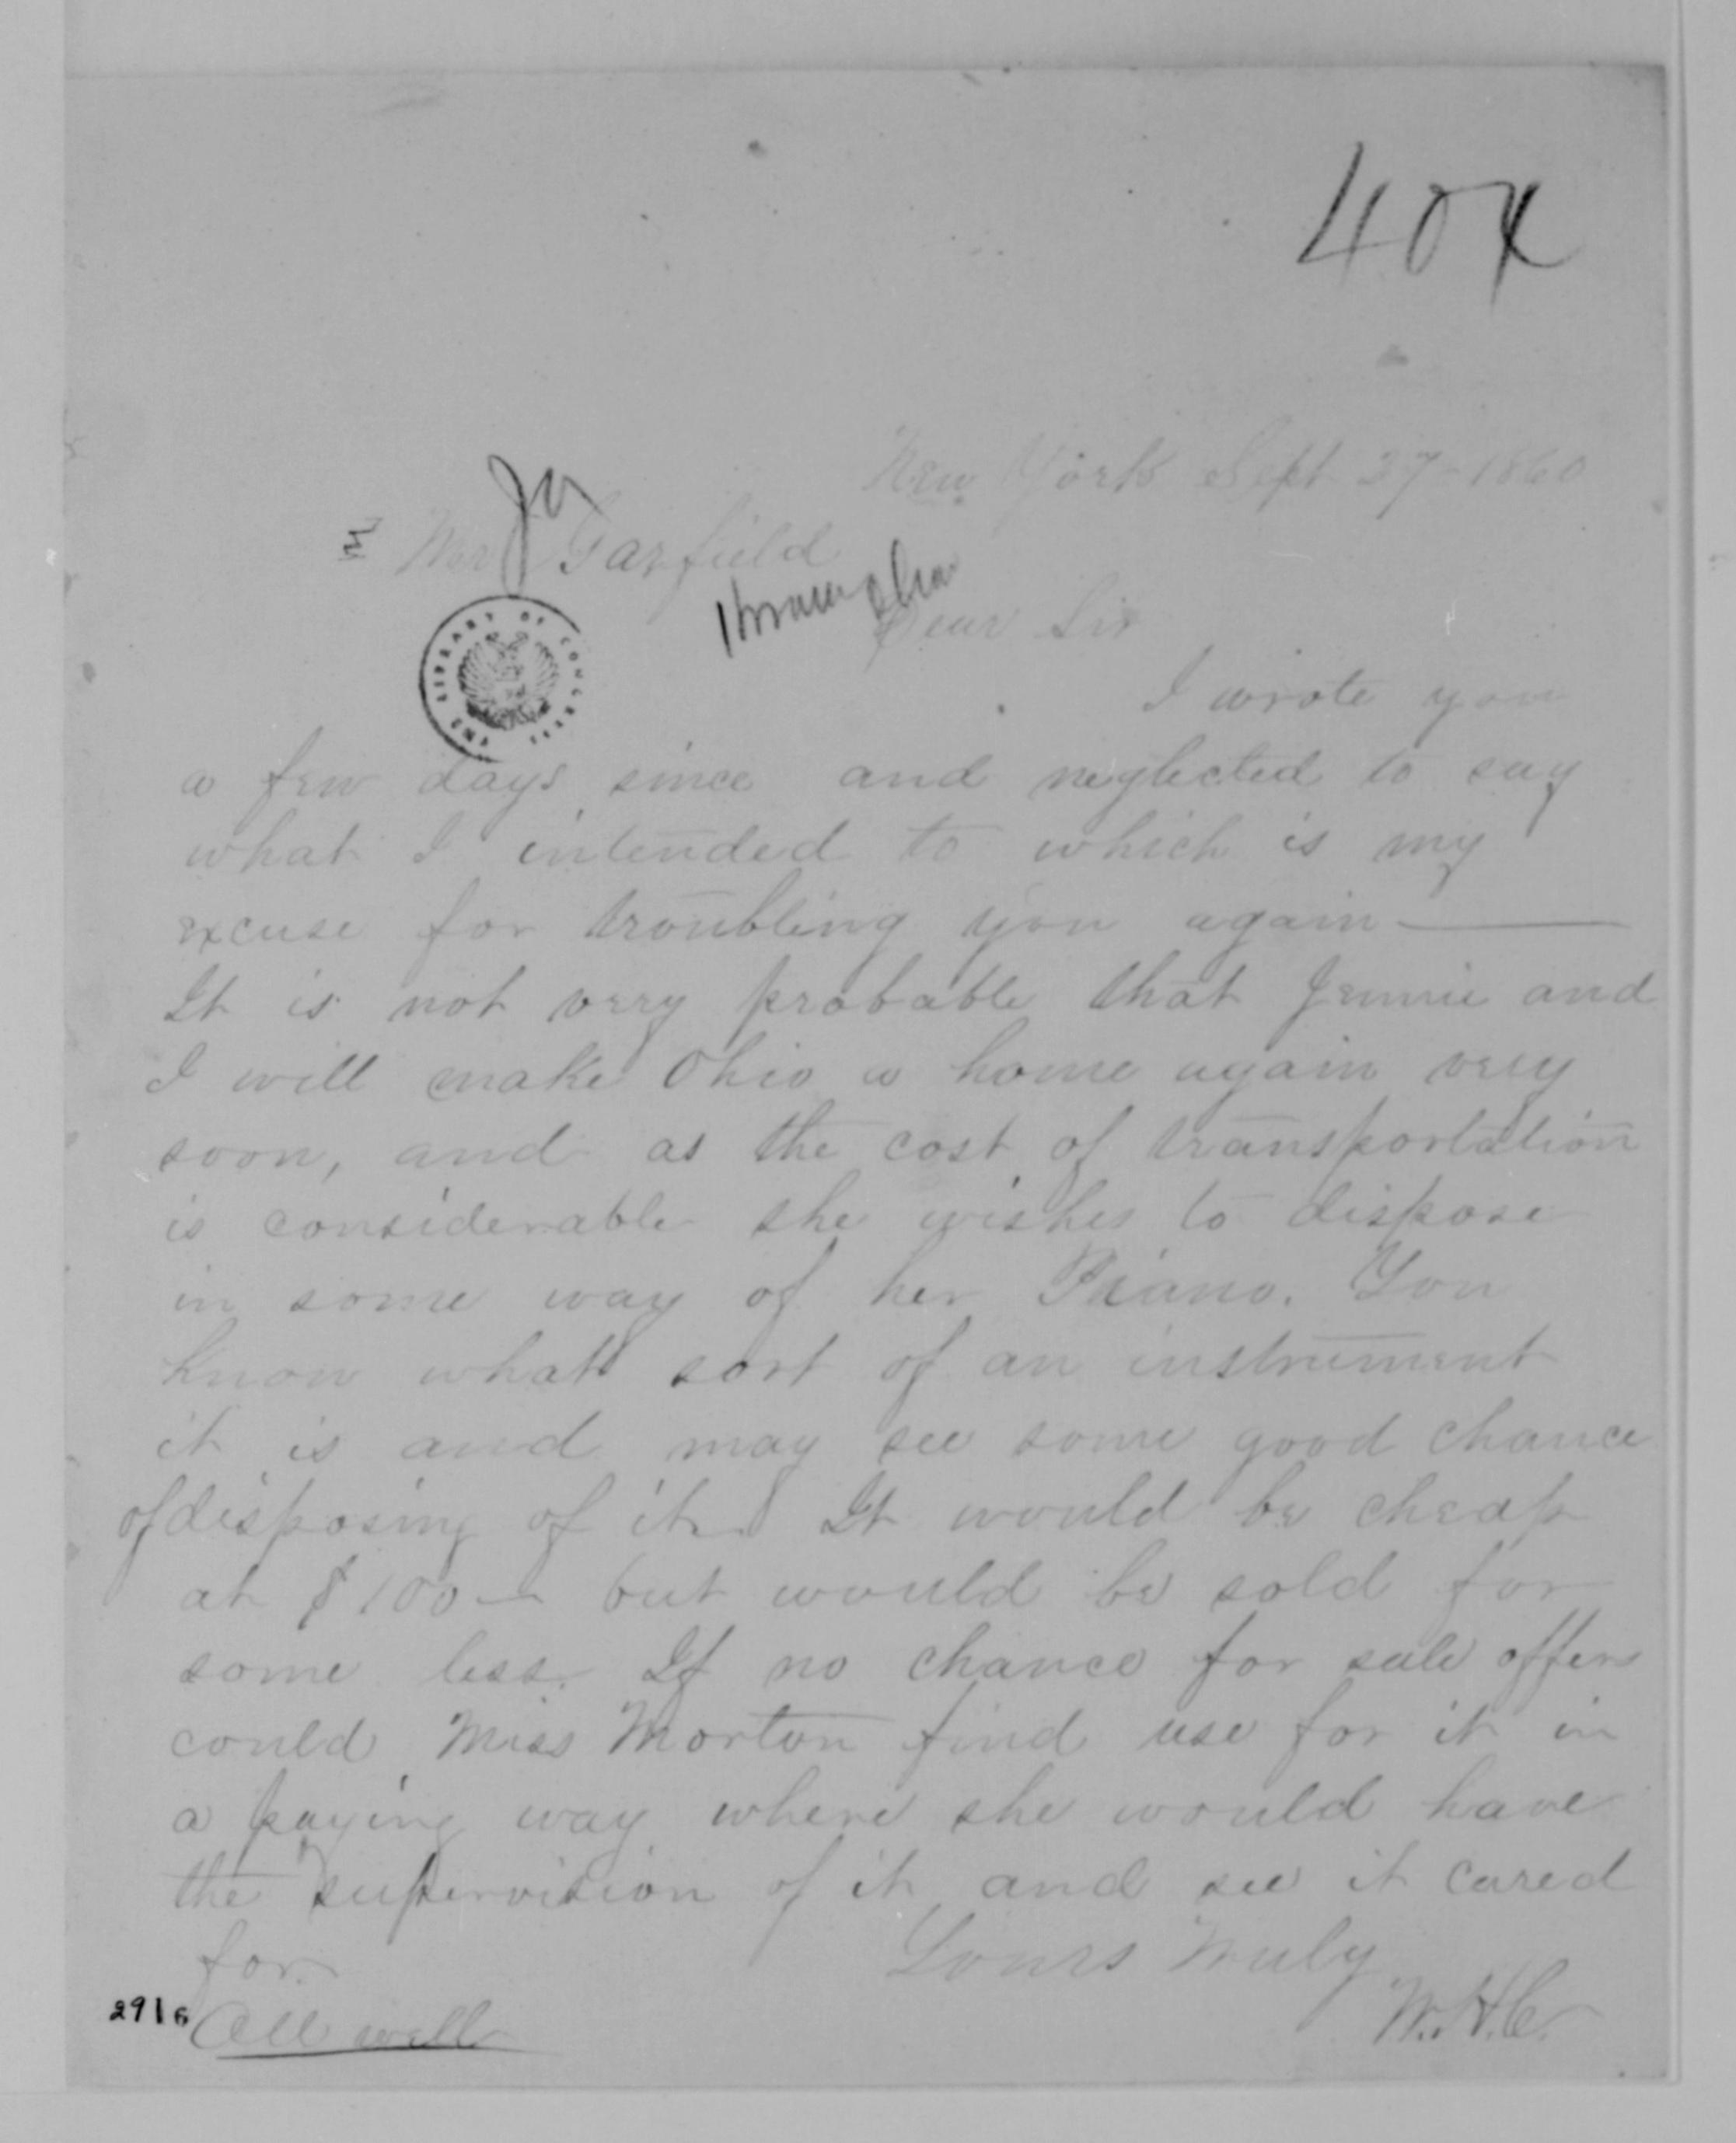 404
New York Sept 27-1860
Ja
Mr Garfield
Dear Sir
THE LIBRARY OF CONGRESS
I wrote you
a few days since and neglected to say
what I intended to which is my
excuse for troubling you again —
It is not very probable that Jennie and
I will make Ohio a home again very
soon, and as the cost of transportation
is considerable she wishes to dispose
in some way of her Piano. You
know what sort of an instrument
it is and may see some good chance
of disposing of it. It would be cheap
at $100 — but would be sold for
some less. If no chance for sale offers
could Miss Morton find use for it in
a paying way where she would have
the supervision of it and see it cared
for.
Yours Truly
W.H.C.
2916
All well